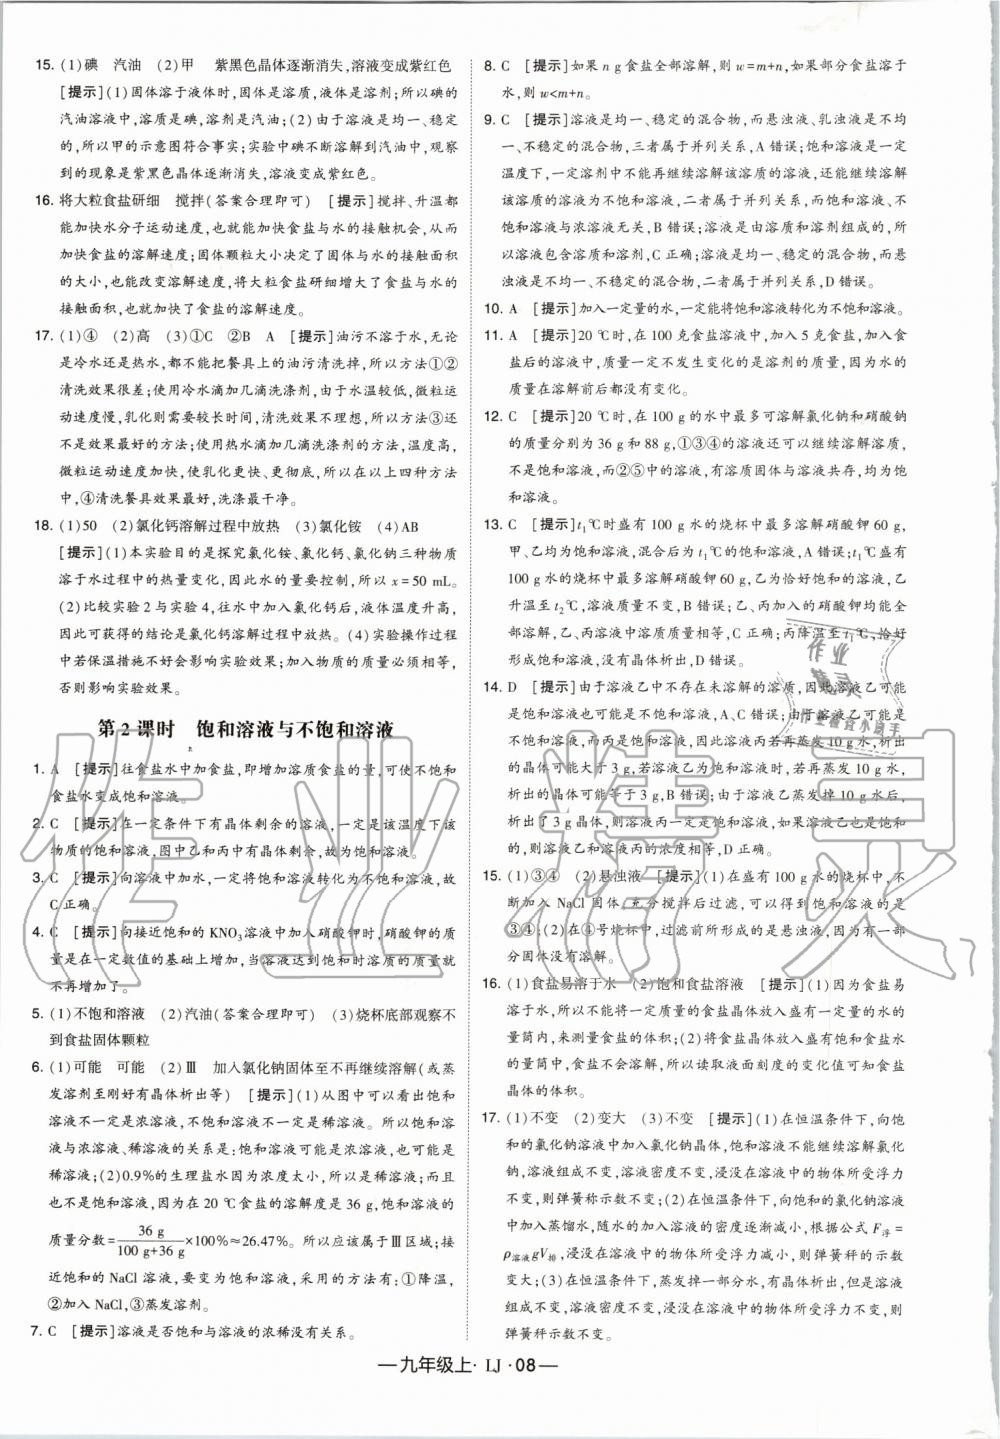 15. (1)碘　汽油　(2)甲　紫黑色晶体逐渐消失,溶液变成紫红色
[提示](1)固体溶于液体时,固体是溶质,液体是溶剂;所以碘的
汽油溶液中,溶质是碘,溶剂是汽油;(2)由于溶液是均一、稳定
的,所以甲的示意图符合事实;实验中碘不断溶解到汽油中,观察
到的现象是紫黑色晶体逐渐消失,溶液变成紫红色。
16. 将大粒食盐研细　搅拌(答案合理即可)　[提示]搅拌、升温都
能加快水分子运动速度,也就能加快食盐与水的接触机会,从而
加快食盐的溶解速度;固体颗粒大小决定了固体与水的接触面积
的大小,也能改变溶解速度,将大粒食盐研细增大了食盐与水的
接触面积,也就加快了食盐的溶解速度。
17. (1)④　(2)高　(3)①C　②B　A　[提示]油污不溶于水,无论
是冷水还是热水,都不能把餐具上的油污清洗掉,所以方法①②
清洗效果很差;使用冷水滴加几滴洗涤剂,由于水温较低,微粒运
动速度慢,乳化则需要较长时间,清洗效果不理想,所以方法③还
不是效果最好的方法;使用热水滴加几滴洗涤剂的方法,温度高,
微粒运动速度加快,使乳化更快、更彻底,所以在以上四种方法
中,④清洗餐具效果最好,洗涤最干净。
18. (1)50　(2)氯化钙溶解过程中放热　(3)氯化铵　(4)AB
[提示](1)本实验目的是探究氯化铵、氯化钙、氯化钠三种物质
溶于水过程中的热量变化,因此水的量要控制,所以 x=50 mL。
(2)比较实验2与实验4,往水中加入氯化钙后,液体温度升高,
因此可获得的结论是氯化钙溶解过程中放热。(4)实验操作过程
中若保温措施不好会影响实验效果;加入物质的质量必须相等,
否则影响实验效果。
第2课时　饱和溶液与不饱和溶液
1. A　[提示]往食盐水中加食盐,即增加溶质食盐的量,可使不饱和
食盐水变成饱和溶液。
2. C　[提示]在一定条件下有晶体剩余的溶液,一定是该温度下该
物质的饱和溶液,图中乙和丙中有晶体剩余,故为饱和溶液。
3. C　[提示]向溶液中加水,一定将饱和溶液转化为不饱和溶液,故
C正确。
4. C　[提示]向接近饱和的 KNO3溶液中加入硝酸钾时,硝酸钾的质
量是在一定数值的基础上增加,当溶液达到饱和时溶质的质量就
不再增加了。
5. (1)不饱和溶液　(2)汽油(答案合理即可)　(3)烧杯底部观察不
到食盐固体颗粒
6. (1)可能　可能　(2)Ⅲ　加入氯化钠固体至不再继续溶解(或蒸
发溶剂至刚好有晶体析出等)　[提示](1)从图中可以看出饱和
溶液不一定是浓溶液,不饱和溶液不一定是稀溶液。所以饱和溶
液与浓溶液、稀溶液的关系是:饱和溶液可能是浓溶液,也可能是
稀溶液;(2)0.9%的生理盐水因为浓度太小,所以是稀溶液;而且
也不是饱和溶液,因为在 20 ℃食盐的溶解度是 36 g,饱和溶液的
质量分数=36 g/(100 g+36 g)×100%≈26.47%。所以应该属于Ⅲ区域;接
近饱和的 NaCl 溶液,要变为饱和溶液,采用的方法有:①降温,
②加入 NaCl,③蒸发溶剂。
7. C　[提示]溶液是否饱和与溶液的浓稀没有关系。
8. C　[提示]如果 n g食盐全部溶解,则 w=m+n,如果部分食盐溶于
水,则 w<m+n。
9. C　[提示]溶液是均一、稳定的混合物,而悬浊液、乳浊液是不均
一、不稳定的混合物,三者属于并列关系,A错误;饱和溶液是一定
温度下,一定溶剂中不能再继续溶解该溶质的溶液,还能继续溶解
该溶质的溶液为不饱和溶液,二者属于并列关系,而饱和溶液、不
饱和溶液与浓溶液无关,B错误;溶液是由溶质和溶剂组成的,所
以溶液包含溶质和溶剂,C正确;溶液是均一、稳定的混合物,而悬
浊液是不均一、不稳定的混合物,D错误。
10. A　[提示]加入一定量的水,一定能将饱和溶液转化为不饱和溶液。
11. A　[提示]20 ℃时,在 100 克食盐溶液中,加入5克食盐,加入食
盐后的溶液中,质量一定不发生变化的是溶剂的质量,因为水的
质量在溶解前后都没有变化。
12. C　[提示]20 ℃时,在 100 g的水中最多可溶解氯化钠和硝酸钠
的质量分别为 36 g和 88 g,①③④的溶液还可以继续溶解溶质,
不是饱和溶液,而②⑤中的溶液,有溶质固体与溶液共存,均为饱
和溶液。
13. C　[提示]t1℃时盛有 100 g水的烧杯中最多溶解硝酸钾 60 g,
甲、乙均为饱和溶液,混合后为t1℃的饱和溶液,A错误;t2℃盛有
100 g的烧杯中最多溶解硝酸钾 60 g,乙为恰好饱和的溶液,乙
升温至 t2℃,溶液质量不变,B错误;乙、丙加入的硝酸钾均能全
部溶解,乙、丙溶液中溶质质量相等,C正确;丙降温至t1℃,恰好
形成饱和溶液,没有晶体析出,D错误。
14. D　[提示]由于溶液乙中不存在未溶解的溶质,因此溶液乙可能
是饱和溶液也可能为不饱和溶液,A、C错误;由于溶液乙可能为
不饱和溶液,而丙是饱和溶液,因此溶液丙若再蒸发10 g水,析出
的晶体可能大于3 g,若溶液乙为饱和溶液时,若再蒸发10 g水,
析出的晶体可能等于3 g,B错误;由于溶液乙蒸发掉 10 g水后,
析出了3 g晶体,则溶液丙一定是饱和溶液,如果溶液乙也是饱和
的,则溶液乙和溶液丙的浓度相等,D正确。
15. (1)③④　(2)悬浊液　[提示](1)在盛有 100 g水的烧杯中,不
断加入 NaCl 固体,充分搅拌后过滤,可以得到饱和溶液的是
③④;(2)在④号烧杯中,过滤前所形成的是悬浊液,因为有一部
分固体没有溶解。
16. (1)食盐易溶于水　(2)饱和食盐溶液　[提示](1)因为食盐易
溶于水,所以不能将一定质量的食盐晶体放入盛有一定水的量
筒内,来测量食盐的体积;(2)将食盐晶体放入盛有饱和食盐水
中时,食盐不会溶解,所以读取液面刻度的变化值可知食盐
晶体的体积。
17. (1)不变　(2)变大　(3)不变　[提示](1)在恒温条件下,向饱
和的氯化钠溶液中加入氯化钠晶体,饱和溶液不能继续溶解氯化
钠,溶液组成不变,溶液密度不变,浸没在溶液中的物体所受浮力
不变,则弹簧称示数不变;(2)在恒温条件下,向饱和的氯化钠溶液
中加入蒸馏水,随水的加入溶液的密度逐渐减小,根据公式 F浮=
ρ溶液gV排,浸没在溶液中的物体所受浮力减小,则弹簧秤的示数
变大;(3)在恒温条件下,蒸发掉一部分水,有晶体析出,但是溶液
组成不变,溶液密度不变,浸没在溶液中的物体所受浮力不变,则
弹簧秤示数不变。
—九年级上·LJ·08—
作业精灵